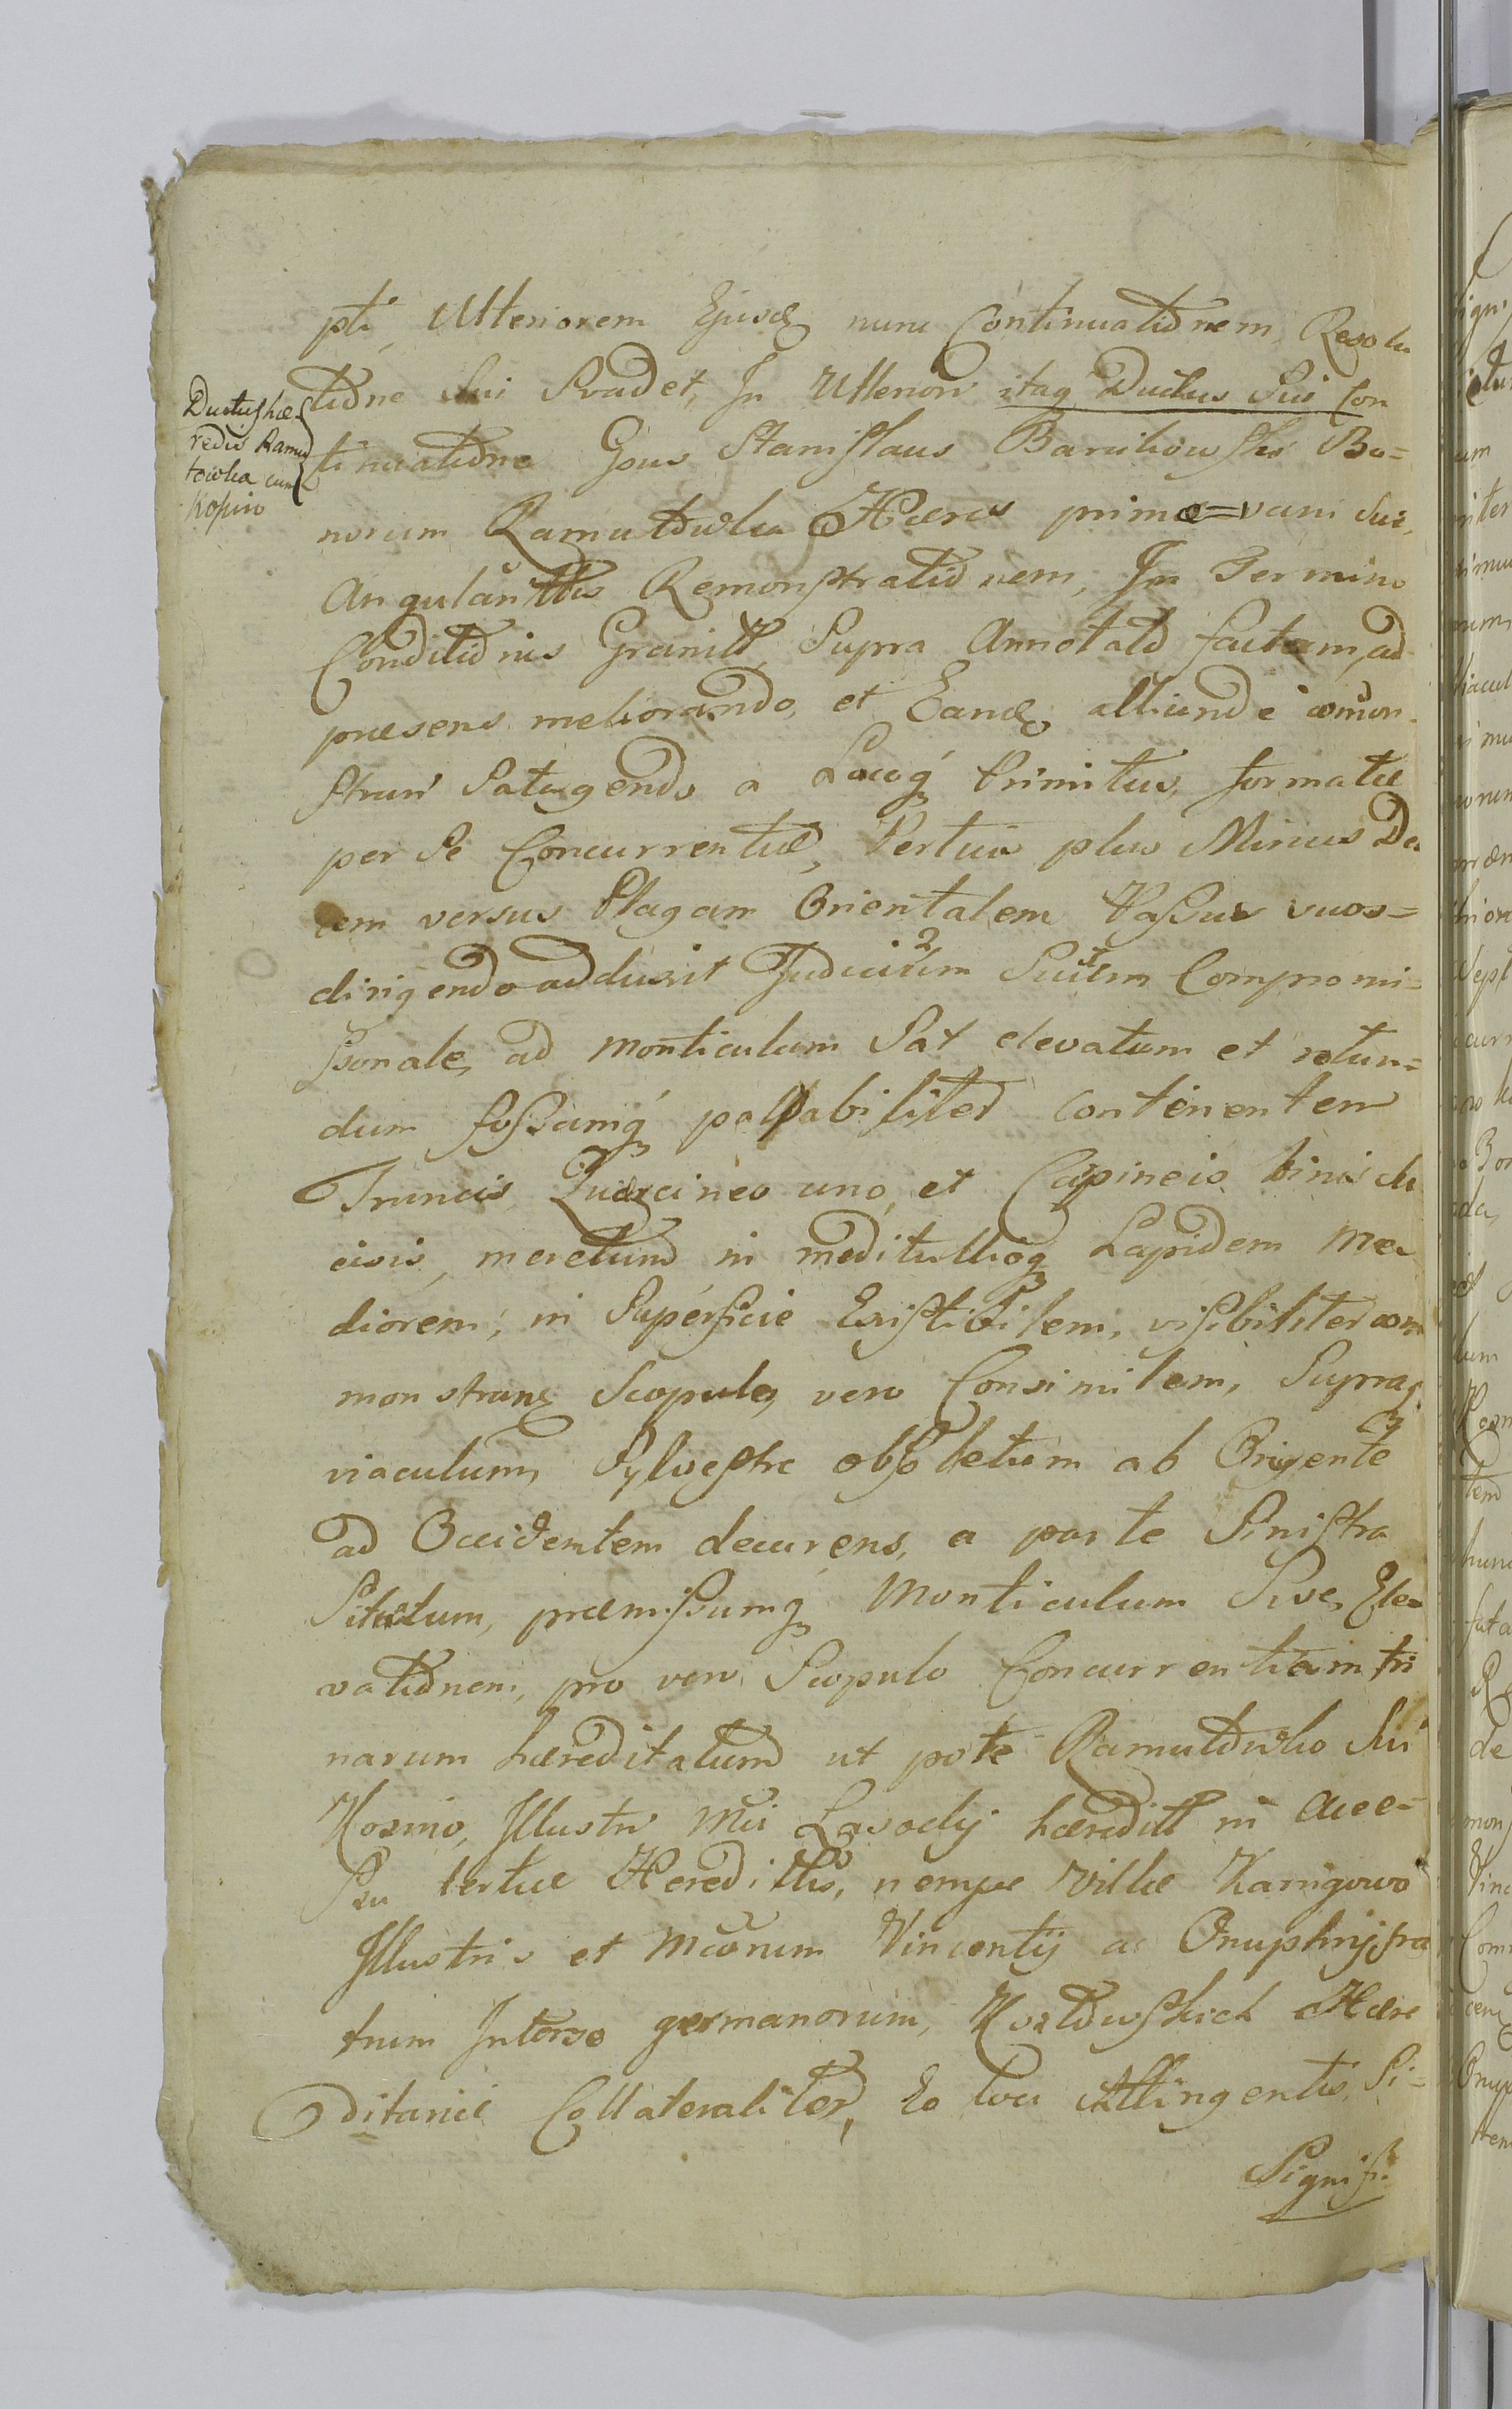 pti, Ulteriorem Ejusd nunc Continuationem, Resolu
tione Sui Svadet, In Ulteriori itaq Ductus Sui Con
tinuatione Gsus Stanislaus Baruliowski Bo=
norum Ramutowka Hæres primæ=vani sui,
Angularitis Remonstrationem, In Termino
Conditionis Granitt, Supra Annotato factam, ad
præsens meliorando, et Eand aliunde comon
strari Satagendo a Locoq Primitus, formatæ
per Se Concurrentiæ, Pertuis plus Minus De
cem versus Plagam Orientalem Passus suos=
dirigendo adduxit Judicium Suum Compromi=
ssoriale, ad monticulum Sat elevatum et rotun=
dum fossamq palpabiliter continentem
Truncis Quercineo uno, et Cæpineis binis de
cisis, in meditullioq Lapidem mæ
diorem, in Superficie Existibilem, visibiliter com
monstrans Scopulo, vero Consimilem, Supraq
viaculum, Sylvestre obsoletum ab Origente
ad Occidentem decurens, a parte Sinistra
Situatum, præmissumq Monticulum Sive, Ele=
vationem, pro vero Scopulo Concurrentiam tri
narum hæreditatum ut pote Ramutowko Sui
Kosino, Illustr Mci Lasocky hæreditt in acce=
ssu tertiæ Hereditts, nempe villæ Karnigowo
Illustris et Mcorum Vincentij ac Onuphrij fra
trum Interse germanorum, Kozłowskich Hære
ditariæ Collateraliter, Eo loci Attingentis, Si=
Signif:
Ductus hæ
redis Ramu
towka cum
Kosino